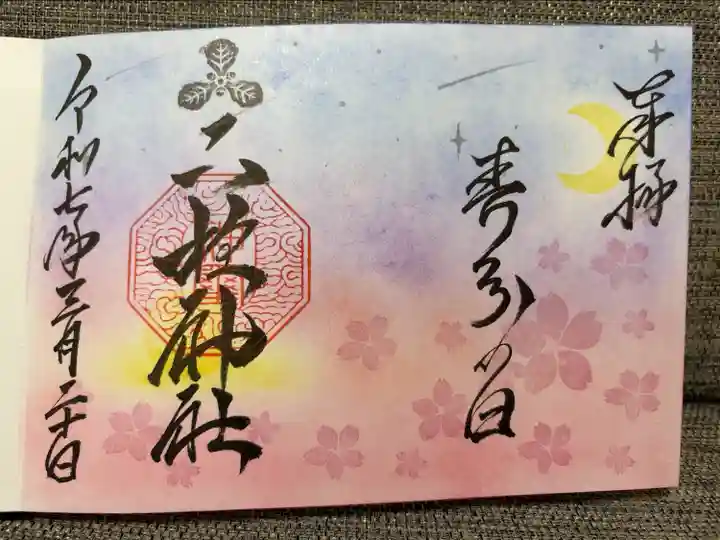 奉拝
春分の日
六所神社
令和七年三月二十日